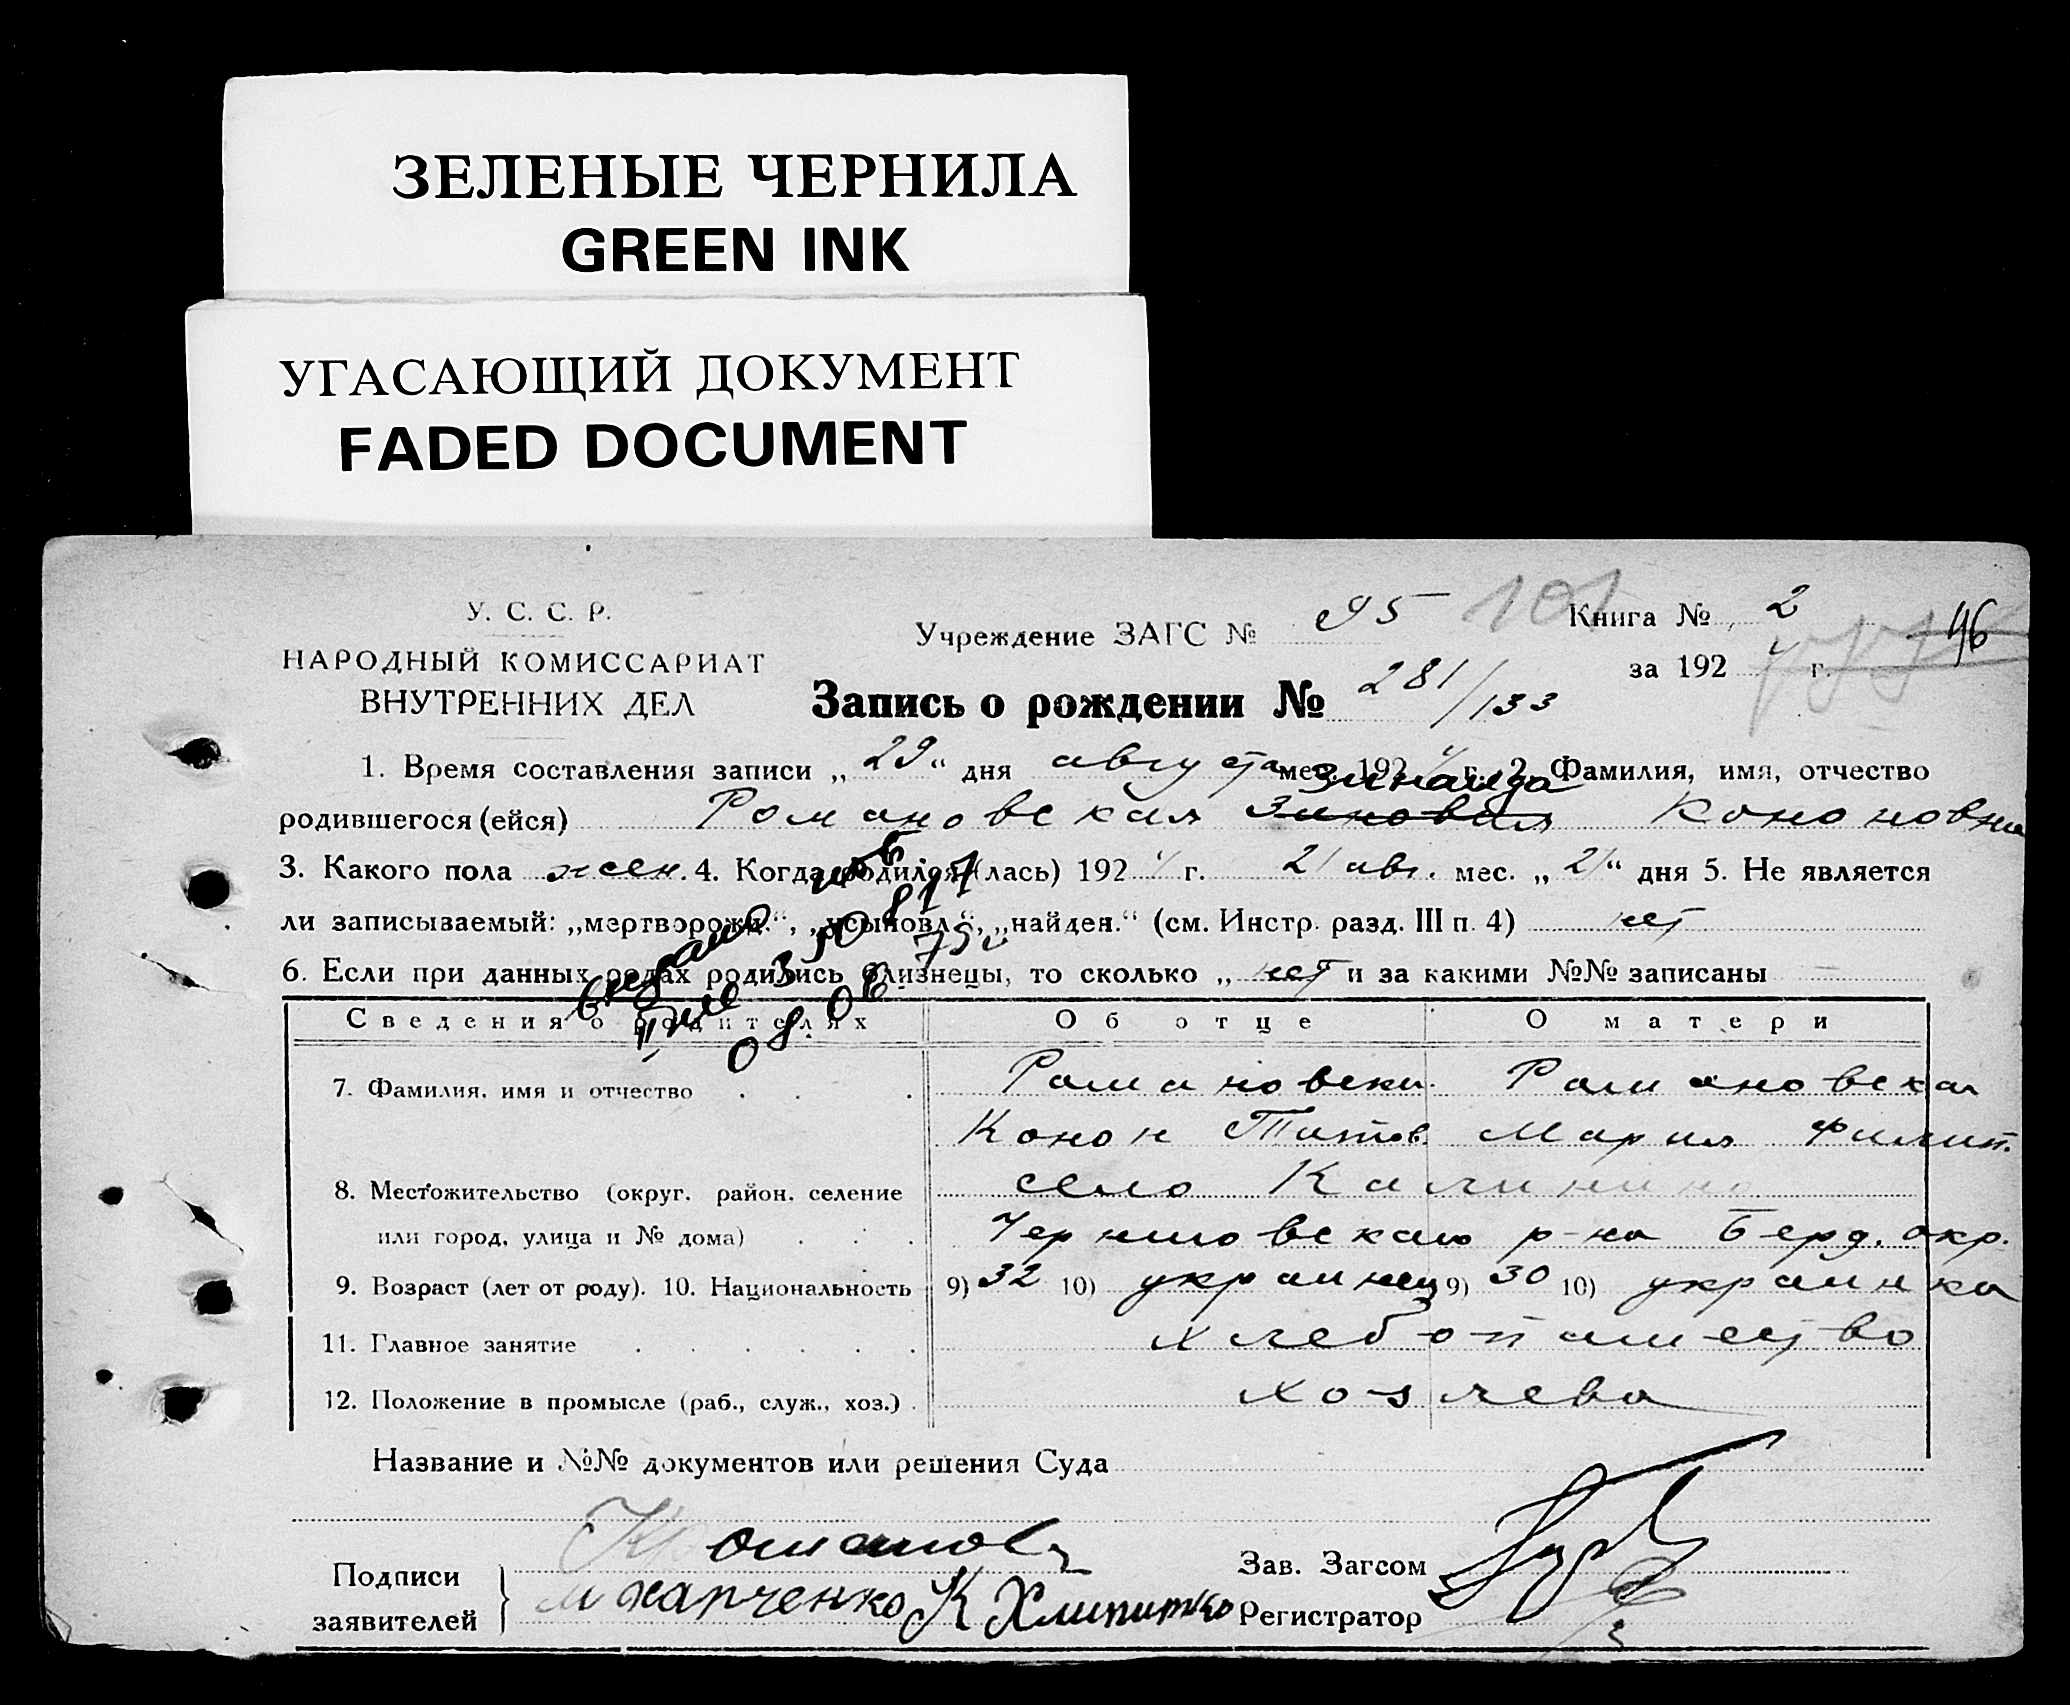 ЗЕЛЕНЫЕ ЧЕРНИЛА
GREEN INK
УГАСАЮЩИЙ ДОКУМЕНТ
FADED DOCUMENT
У. С. С. Р.
НАРОДНЫЙ КОМИССАРИАТ
ВНУТРЕННИХ ДЕЛ
Учреждение ЗАГС № 95 101
Книга № 2
96
за 192 4 г.
Запись о рождении № 281/133
1. Время составления записи „ 29 “ дня августа мес. 192 4 г. 2. Фамилия, имя, отчество
Зинаида
родившегося (ейся) Романовская Зиновия Кононовна
3. Какого пола жен. 4. Когда родился (лась) 192 4 г. 21 авг. мес. „ 21 “ дня 5. Не является
ли записываемый: „мертворожд.“, „усыновл.“, „найден.“ (см. Инстр. разд. III п. 4) нет
6. Если при данных родах родились близнецы, то сколько „ нет и за какими №№ записаны —
Выдано
350817
08.06.75г
Сведения о родителях Об отце О матери
7. Фамилия, имя и отчество Романовски. Романовская
Конон Титов. Мария Филип.
8. Местожительство (округ, район, селение село Калинино
или город, улица и № дома) Черниговского р-на Берд. окр.
9. Возраст (лет от роду). 10. Национальность 9) 32 10) украинец 9) 30 10) украинка
11. Главное занятие хлебопашество
12. Положение в промысле (раб., служ., хоз.) хозяева
Название и №№ документов или решения Суда
Подписи
заявителей
Зав. Загсом
Регистратор